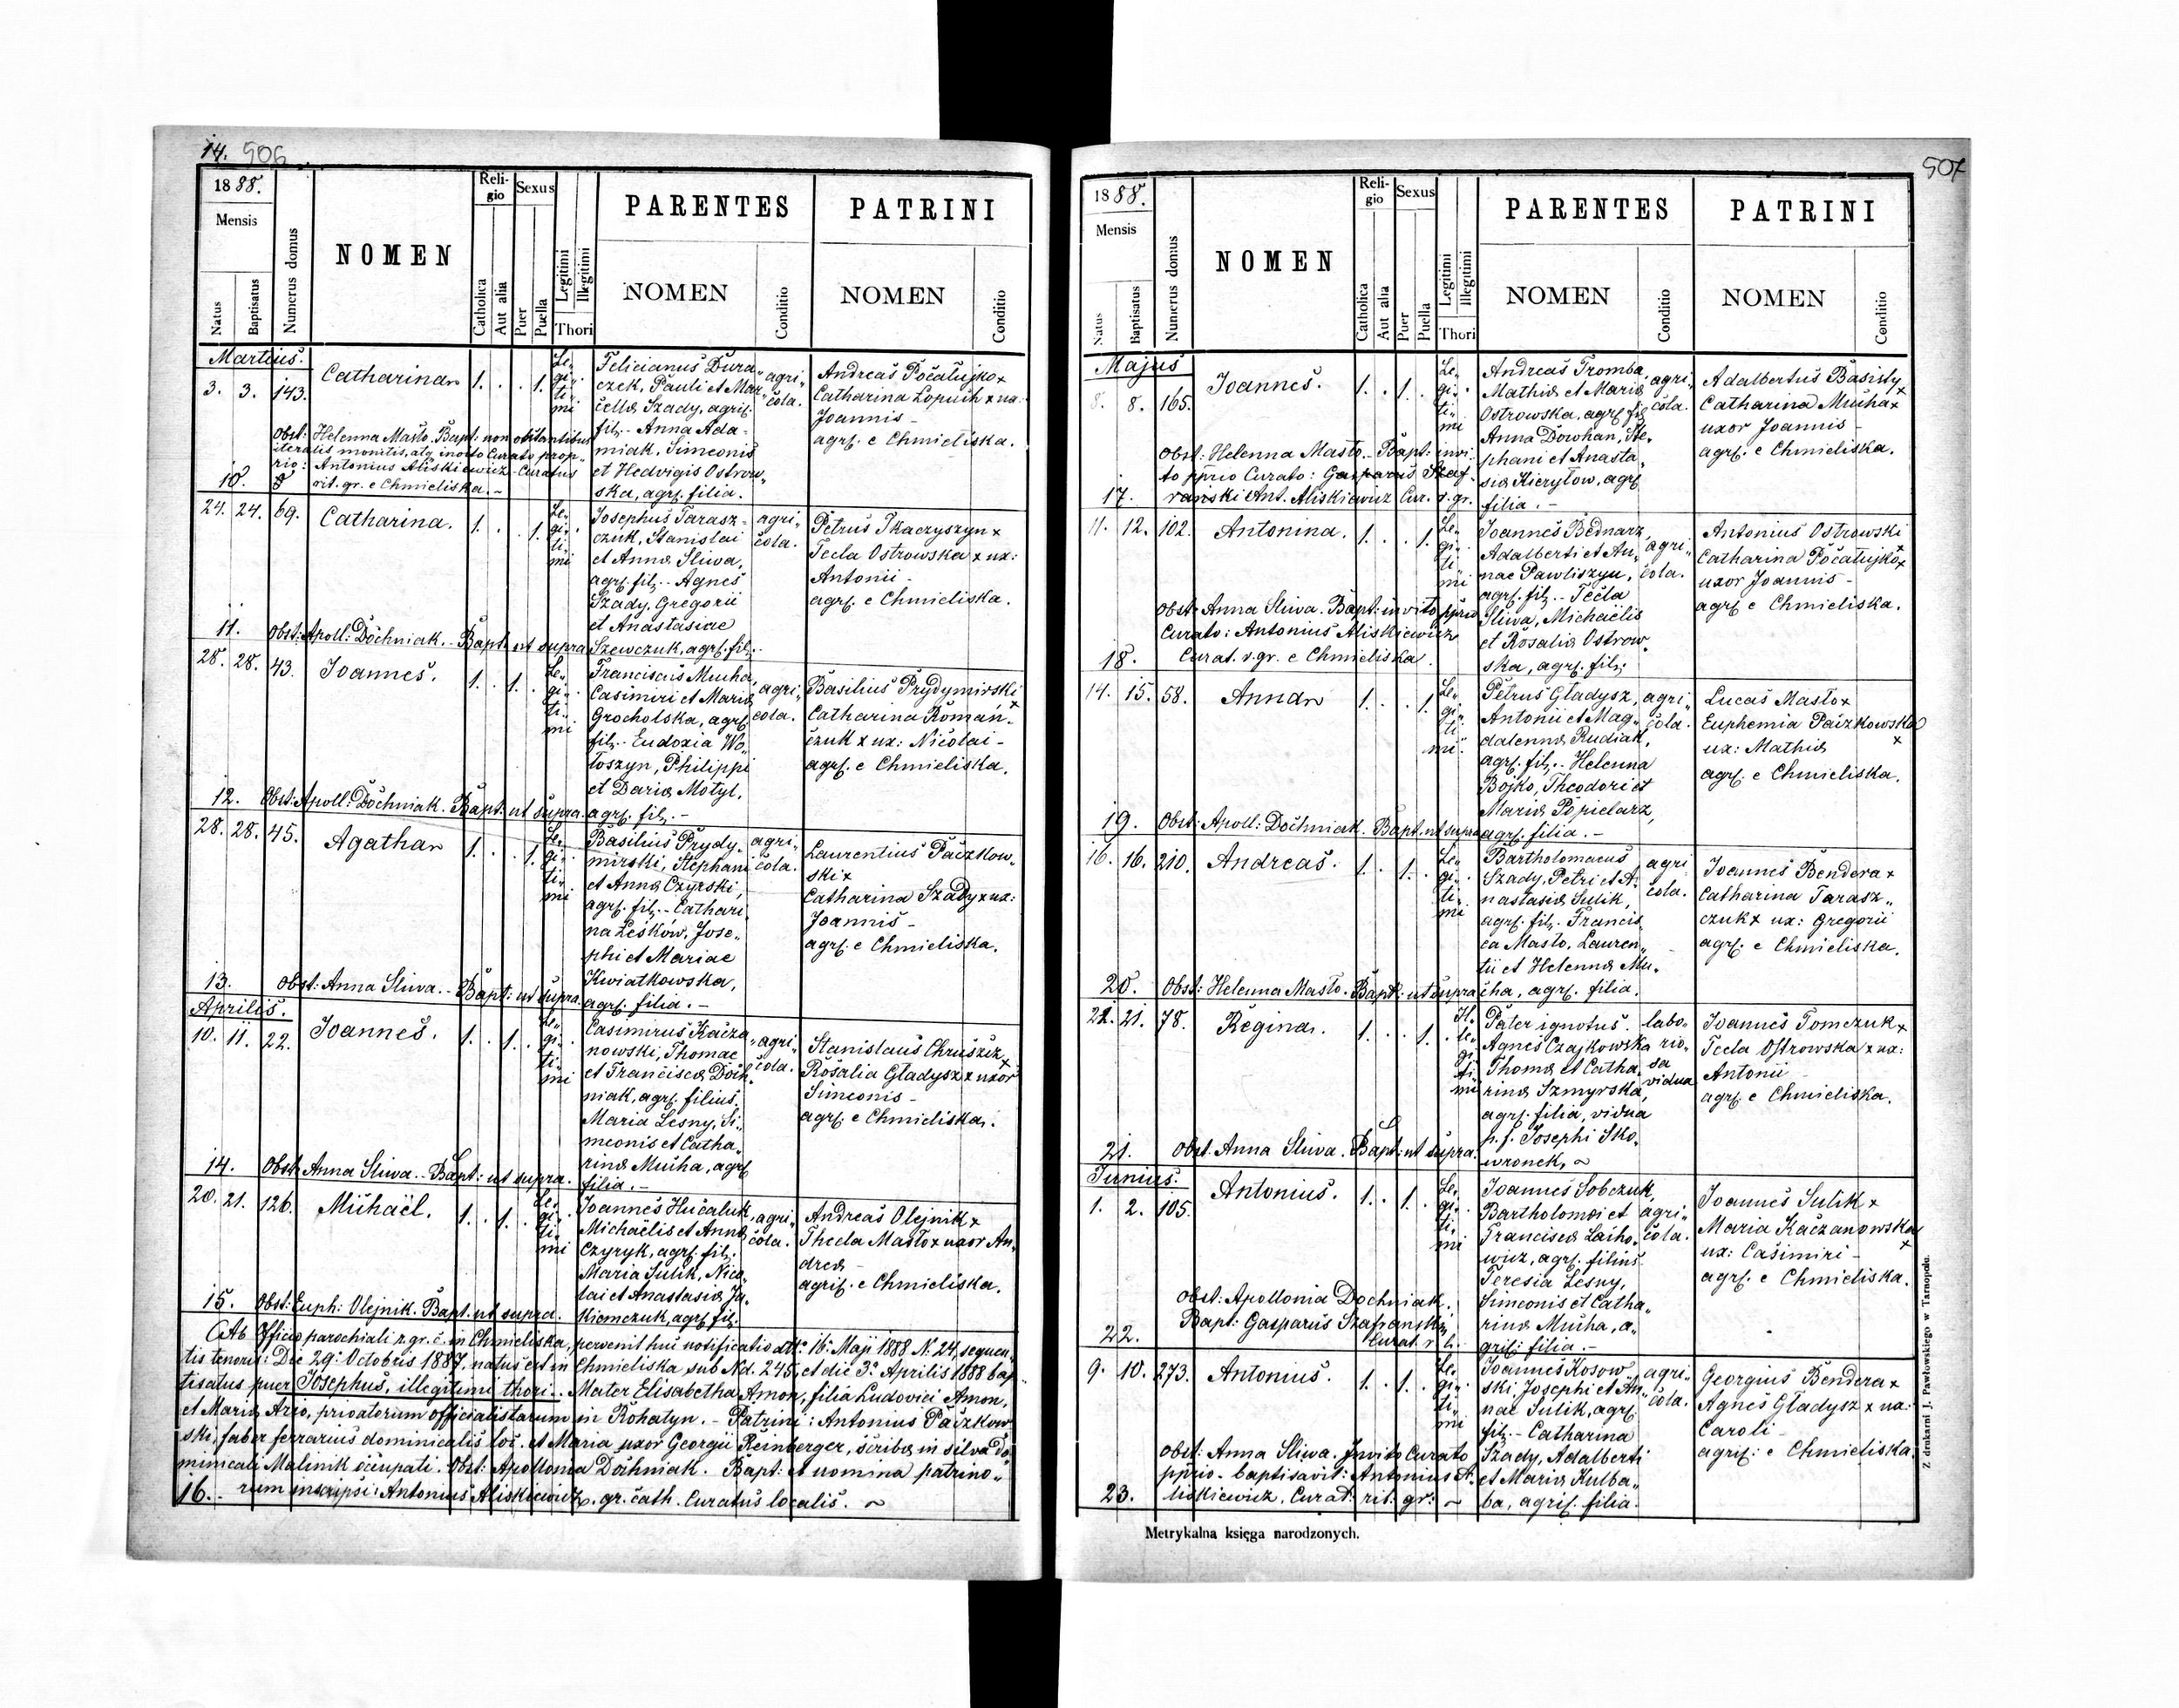 14. 506
1888.
Mensis
Natus
Baptisatus
Numerus domus
NOMEN
Religio
Catholica
Aut alia
Sexus
Puer
Puella
Legitimi
Illegitimi
Thori
PARENTES
NOMEN
Conditio
PATRINI
NOMEN
Conditio
Martius.
3. 3. 143. Catharina 1. . . 1. Le„
gi„
ti„
mi
Felicianus Dura„
czek, Pauli et Mar„
cella Szady, agri.
fil. - Anna Ada-
miak, Simeonis
et Hedvigis Ostrow„
ska, agr. filia.
agri„
cola.
Andreas Počatujko x
Catharina Lopuch x ux.
Joannis -
agr. e Chmieliska.
Obst: Helenna Masło. Bapt. non obstantibus
iteratis monitis, atq inoito Curato prop„
rio: Antonius Aliskiewicz - Curatus
10. rit. gr. e Chmieliska. -
24. 24. 69. Catharina. 1. . . 1. Le„
gi„
ti„
mi
Josephus Tarasz-
czuk, Stanislai
et Anna Sliwa,
agr. fil. - Agnes
Szady, Gregorii
et Anastasiae
Szewczuk, agr. fil. -
agri„
cola.
Petrus Tkaczyszyn x
Tecla Ostrowska x ux:
Antonii -
agr. e Chmieliska.
11. Obst: Apoll: Dochniak. - Bapt: ut supra
28. 28. 43. Joannes. 1. . 1. . Le„
gi„
ti„
mi
Franciscus Mucha,
Casimiri et Maria
Grocholska, agr.
fil. - Eudoxia Wo„
łoszyn, Philippi
et Daria Motyl,
agr. fil. -
agri„
cola.
Basilius Prydymirski x
Catharina Román„
czuk x ux: Nicolai -
agr. e Chmieliska.
12. Obst: Apoll: Dochniak. Bapt: ut supra.
28. 28. 45. Agatha 1. . . 1. Le„
gi„
ti„
mi
Basilius Prydy„
mirski, Stephani
et Anna Czyrski,
agr. fil. - Cathari„
na Leśków, Jose„
phi et Mariae
Kwiatkowska,
agr. filia. -
agri„
cola.
Laurentius Paczkow„
ski x
Catharina Szady x ux:
Joannis -
agr. e Chmieliska.
13. Obst: Anna Sliwa. - Bapt: ut supra.
Aprilis.
10. 11. 22. Joannes. 1. . 1. . Le„
gi„
ti„
mi
Casimirus Kacza„
nowski, Thomae
et Francisca Doch„
niak, agr. filius.
Maria Lesny, Si„
meonis et Catha„
rina Mucha, agr.
filia. -
agri„
cola.
Stanislaus Chruszcz x
Rosalia Gładysz x uxor
Simeonis -
agr. e Chmieliska.
14. Obst: Anna Sliwa. - Bapt: ut supra.
20. 21. 126. Michaël. 1. . 1. . Le„
gi„
ti„
mi
Joannes Hucaluk,
Michaëlis et Anna
Czyryk, agr. fil.
Maria Sulik, Nico„
lai et Anastasia Ja„
kiemczuk, agr. fil.
agri„
cola.
Andreas Olejnik x
Thecla Masło x uxor An„
drea -
agri. e Chmieliska.
15. Obst: Euph: Olejnik. Bapt. ut supra.
Ab Officio parochiali r. gr. c. in Chmieliska, pervenit huc notificatio dtto 16. Maji 1888 N. 24, sequen„
tis tenoris: Die 29. Octobris 1887. natus est in Chmieliska sub Nd. 245, et die 3. Aprilis 1888 bap„
tisatus puer Josephus, illegitimi thori. - Mater Elisabetha Amon, filia Ludovici Amon,
et Maria Arzo, privatorum officialistarum in Rohatyn. - Patrini: Antonius Paczkow„
ski, faber ferrarius dominicalis loc. et Maria uxor Georgii Reinberger, scriba in silva do„
minicali Malinik occupati. Obst: Apollonia Dochniak. Bapt: et nomina patrino„
16. - rum inscripsi: Antonius Aliskiewicz. gr. cath. Curatus localis.
507
1888.
Mensis
Natus
Baptisatus
Numerus domus
NOMEN
Religio
Catholica
Aut alia
Sexus
Puer
Puella
Legitimi
Illegitimi
Thori
PARENTES
NOMEN
Conditio
PATRINI
NOMEN
Conditio
Majus
8. 8. 165. Joannes. 1. . 1. . Le„
gi„
ti„
mi
Andreas Tromba
Mathia et Maria
Ostrowska, agr. fil.
Anna Dowhan, Ste„
phani et Anasta„
sia Kieryłow, agr.
filia. -
agri„
cola.
Adalbertus Basisty x
Catharina Mucha x
uxor Joannis -
agr. e Chmieliska.
Obst: Helenna Masło. - Bapt: invi„
to pprio Curato: Gasparus Szaf„
17. ranski Ant. Aliskiewicz Cur. r. gr.
11. 12. 102. Antonina. 1. . . 1. Le„
gi„
ti„
mi
Joannes Bednarz,
Adalberti et An„
nae Pawliszyn,
agr. fil. - Tecla
Sliwa, Michaëlis
et Rosalia Ostrow„
ska, agr. fil:
agri„
cola.
Antonius Ostrowski x
Catharina Počatujko x
uxor Joannis -
agr. e Chmieliska.
Obst: Anna Sliwa. Bapt: invito pprio
Curato: Antonius Aliskiewicz
18. Curat. r. gr. e Chmieliska.
14. 15. 58. Anna 1. . . 1. Le„
gi„
ti„
mi.
Petrus Gładysz,
Antonii et Mag„
dalenna Rudiak,
agr. fil. - Helenna
Bojko, Theodori et
Maria Popielarz,
agr. filia. -
agri„
cola.
Lucas Masło x
Euphemia Paczkowska x
ux: Mathia
agr. e Chmieliska.
19. Obst: Apoll: Dochniak. Bapt. ut supra
16. 16. 210. Andreas. 1. . 1. . Le„
gi„
ti„
mi
Bartholomaeus
Szady, Petri et A„
nastasia Sulik,
agr. fil. Francis„
ca Masło, Lauren„
tii et Helenna Mu„
cha, agr. filia.
agri„
cola.
Joannes Bendera x
Catharina Tarasz„
czuk x ux: Gregorii
agr. e Chmieliska.
20. Obst: Helenna Masło. Bapt: ut supra
21. 21. 78. Regina. 1. . . 1. Il„
le„
gi„
ti„
mi
Pater ignotus.
Agnes Czajkowska
Thoma et Catha„
rina Szmyrska,
agr. filia, vidua
p. f. Josephi Sko„
wronek,
labo„
rio„
sa
vidua
Joannes Tomczuk x
Tecla Ostrowska x ux:
Antonii
agr. e Chmieliska.
21. Obst. Anna Sliwa. Bapt: ut supra.
Junius.
1. 2. 105. Antonius. 1. . 1. . Le„
gi„
ti„
mi
Joannes Sobczuk,
Bartholomaei et
Francisca Lacho„
wicz, agr. filius
Teresia Lesny,
Simeonis et Catha„
rina Mucha, a„
gri: filia. -
agri„
cola.
Joannes Sulik x
Maria Kaczanowska x
ux: Casimiri -
agr. e Chmieliska.
Obst: Apollonia Dochniak.
Bapt: Gasparus Szafranski,
22. Curat. r. l.
9. 10. 273. Antonius. 1. . 1. . Le„
gi„
ti„
mi
Joannes Kosow„
ski, Josephi et An„
nae Sulik, agr.
fil. - Catharina
Szady, Adalberti
et Maria Kulba„
ba, agri. filia.
agri„
cola.
Georgius Bendera x
Agnes Gładysz x ux:
Caroli -
agri: e Chmieliska.
Obst: Anna Sliwa. Invito Curato
pprio - baptisavit: Antonius A„
23. liskiewicz, Curat: rit: gr:
Metrykalna księga narodzonych.
Z drukarni J. Pawłowskiego w Tarnopolu.